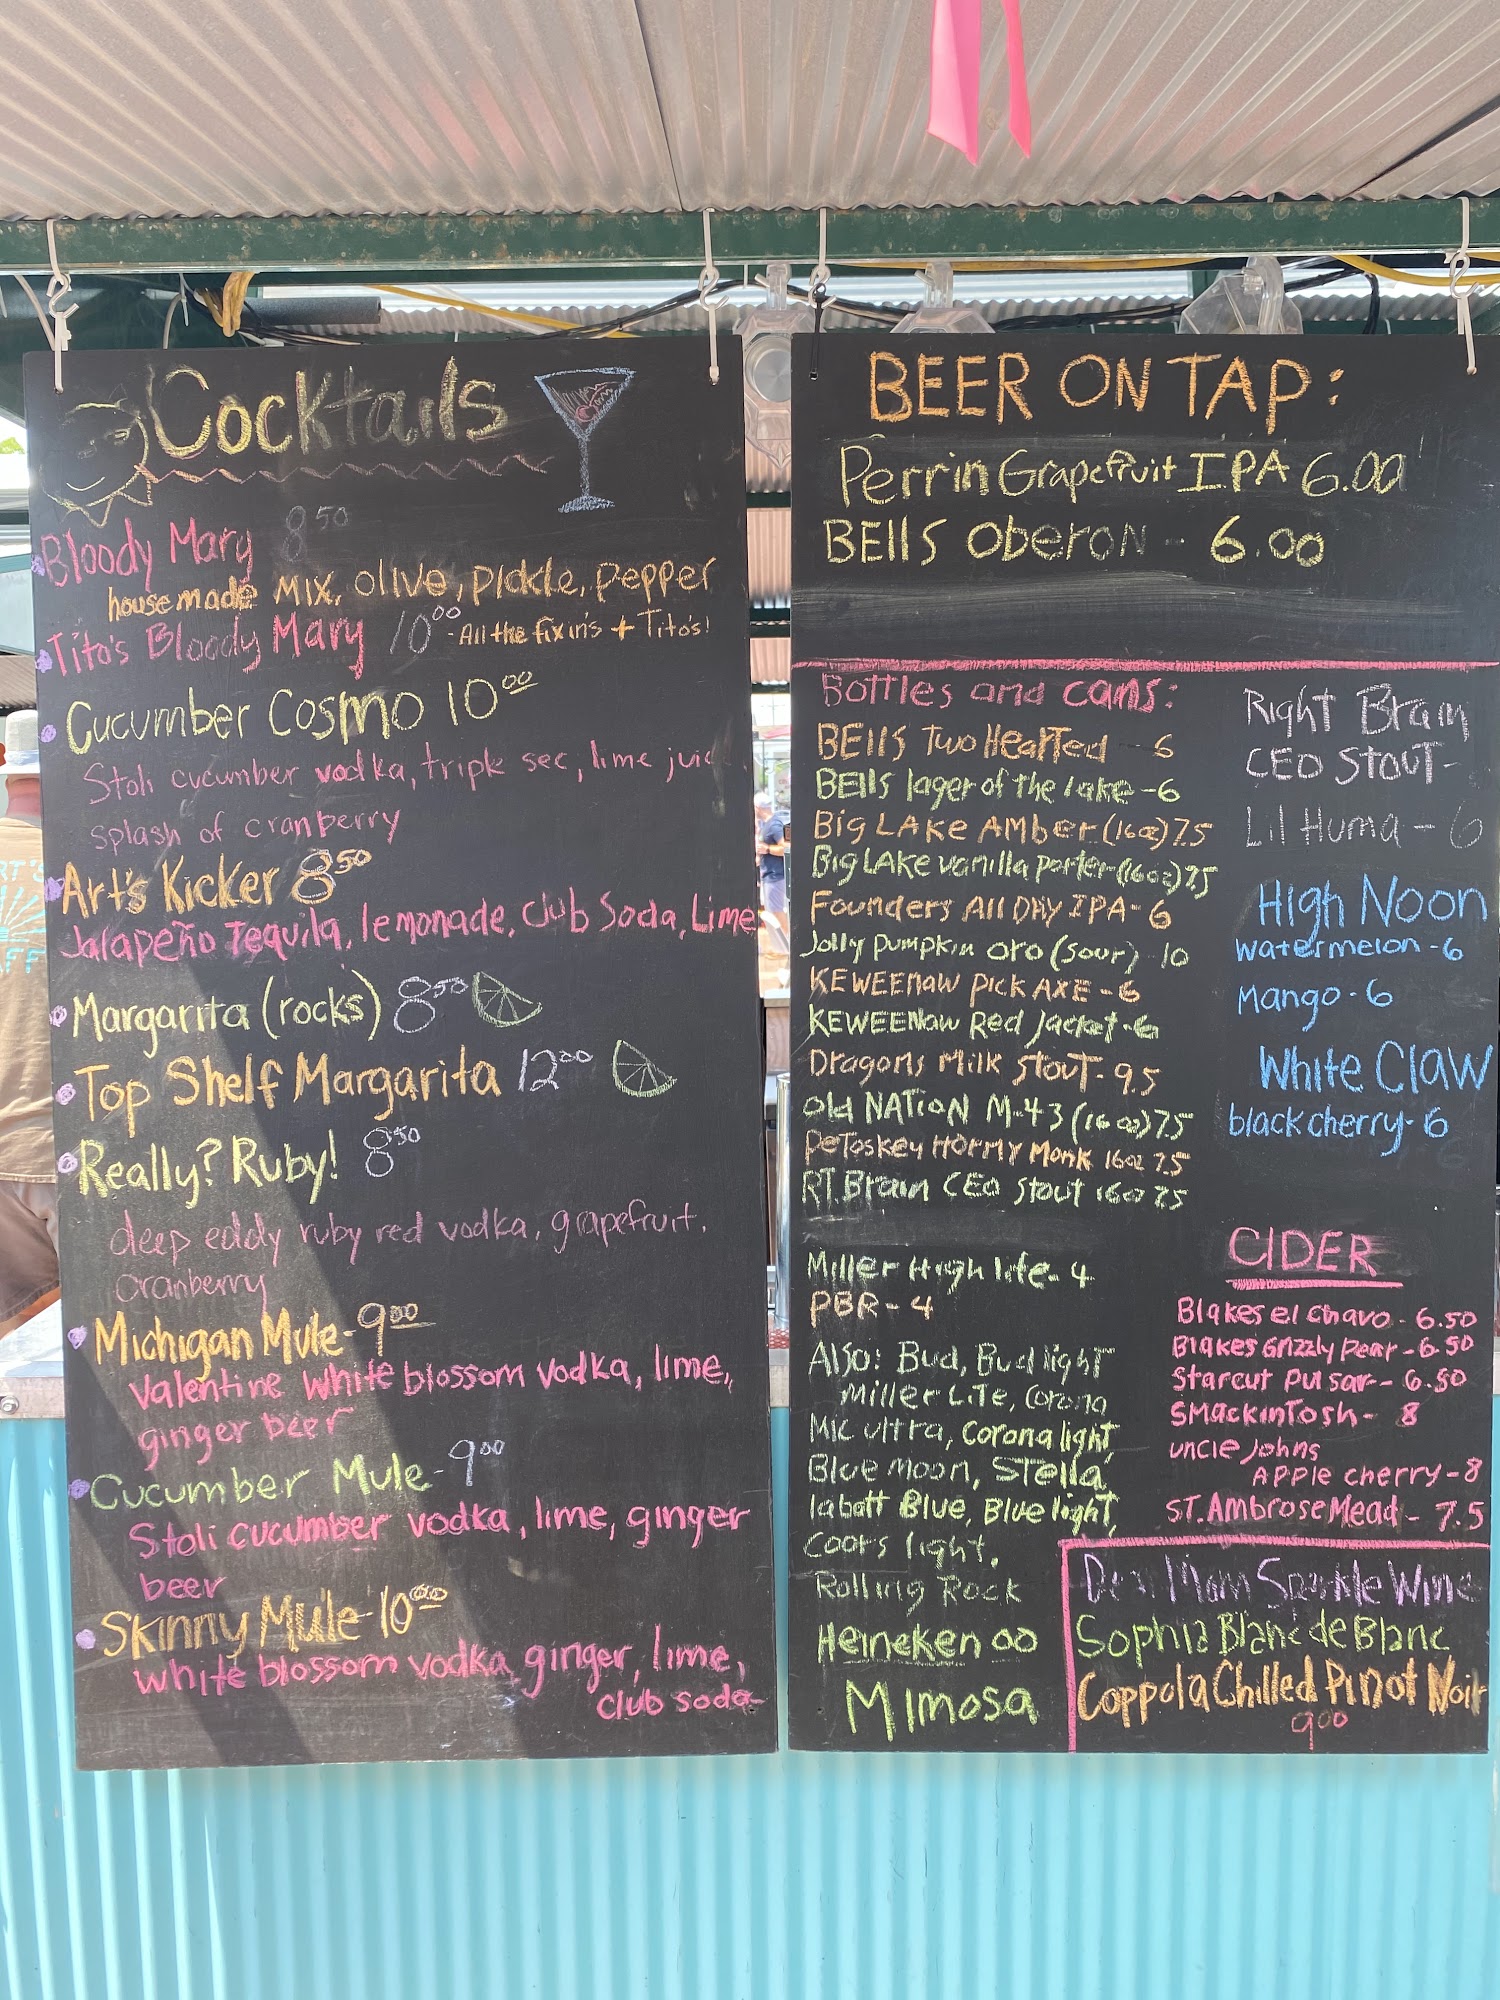 Cocktails
Bloody Mary 8 50
housemade MIX, olive, pickle, pepper
Tito's Bloody Mary 10 00 - All the fixin's + Tito's!
Cucumber Cosmo 10 00
Stoli cucumber vodka, triple sec, lime juic
splash of cranberry
Art's Kicker 8 50
Jalapeño Tequila, lemonade, Club Soda, Lime
Margarita (rocks) 8 50
Top Shelf Margarita 12 00
Really? Ruby! 8 50
deep eddy ruby red vodka, grapefruit,
cranberry
Michigan Mule - 9 00
Valentine White blossom vodka, lime,
ginger beer
Cucumber Mule - 9 00
Stoli cucumber vodka, lime, ginger
beer
Skinny Mule - 10 00
White blossom vodka, ginger, lime,
club soda
BEER ON TAP:
Perrin Grapefruit IPA 6.00
BEllS Oberon - 6.00
Bottles and cans:
BEllS Two Hearted 6
BEllS lager of the lake - 6
Big LAKE AMber (16oz) 7.5
Big LAKE vanilla porter (16oz) 7.5
Founders All DAY IPA - 6
Jolly Pumpkin oro (sour) 10
KEWEENAW PICK AXE - 6
KEWEENaw Red Jacket - 6
Dragons Milk Stout - 9.5
Old NATION M-43 (16oz) 7.5
PeToskey HORNY Monk 16oz 7.5
RT. Brain CEO Stout 16oz 7.5
Miller High life - 4
PBR - 4
Also: Bud, Bud light
Miller LiTe, Corona
Mic ultra, Corona light,
Blue moon, Stella,
labatt Blue, Blue light,
Coors light,
Rolling Rock
Heineken 00
MImosa
Right Brain
CEO STOUT -
Lil Huma - 6
High Noon
Watermelon - 6
Mango - 6
White Claw
black cherry - 6
CIDER
Blakes el Chavo - 6.50
Blakes Grizzly Pear - 6.50
Starcut Pulsar - 6.50
SMackinTosh - 8
uncle Johns
Apple cherry - 8
ST. Ambrose Mead - 7.5
Mom Sparkle Wine
Sophia Blanc de Blanc
Coppola Chilled Pinot Noir
9 00